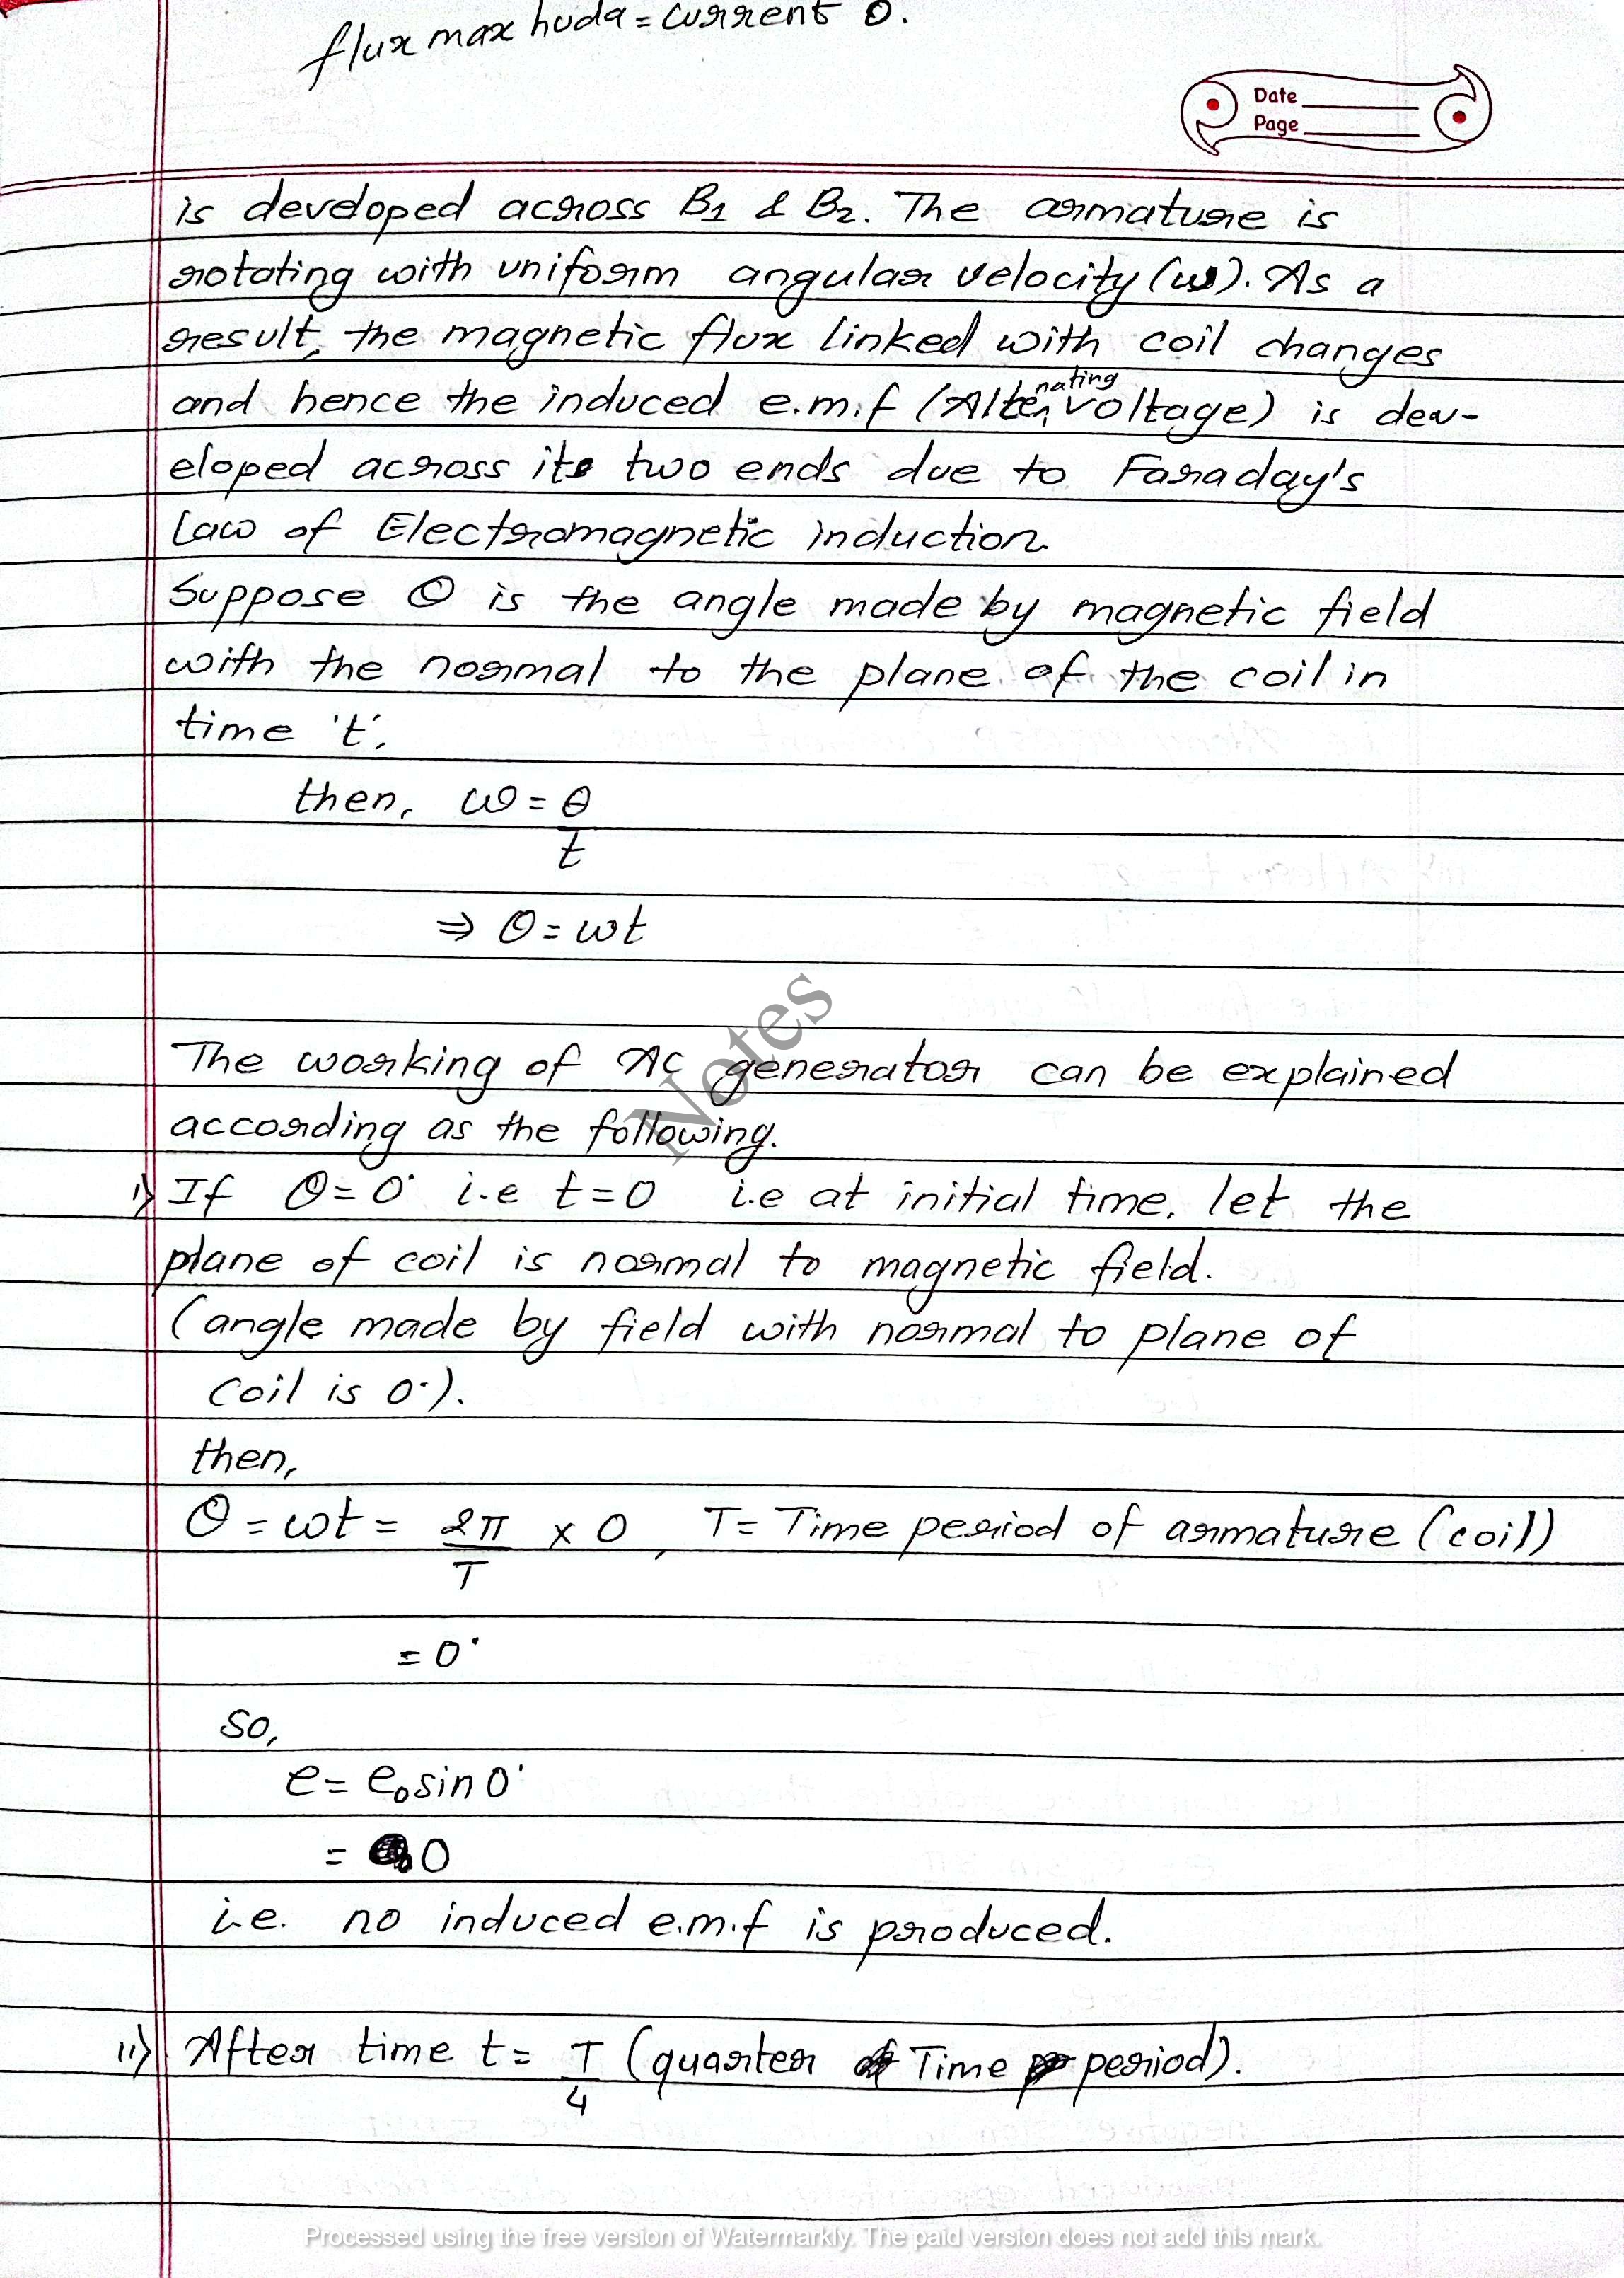 flux max huda = current 0.
Date
Page
is developed across B1 & B2. The armature is
rotating with uniform angular velocity (ω). As a
result, the magnetic flux linked with coil changes
and hence the induced e.m.f (Alternating voltage) is dev-
eloped across its two ends due to Faraday's
Law of Electromagnetic induction.
Suppose θ is the angle made by magnetic field
with the normal to the plane of the coil in
time 't',
then, ω = θ/t
⇒ θ = ωt
Notes
The working of AC generator can be explained
according as the following.
i) If θ = 0° i.e t = 0 i.e at initial time, let the
plane of coil is normal to magnetic field.
(angle made by field with normal to plane of
coil is 0°).
then,
θ = ωt = 2π/T × 0, T = Time period of armature (coil)
= 0°
so,
e = e₀ sin 0°
= 0
i.e. no induced e.m.f is produced.
ii) After time t = T/4 (quarter Time period).
Processed using the free version of Watermarkly. The paid version does not add this mark.